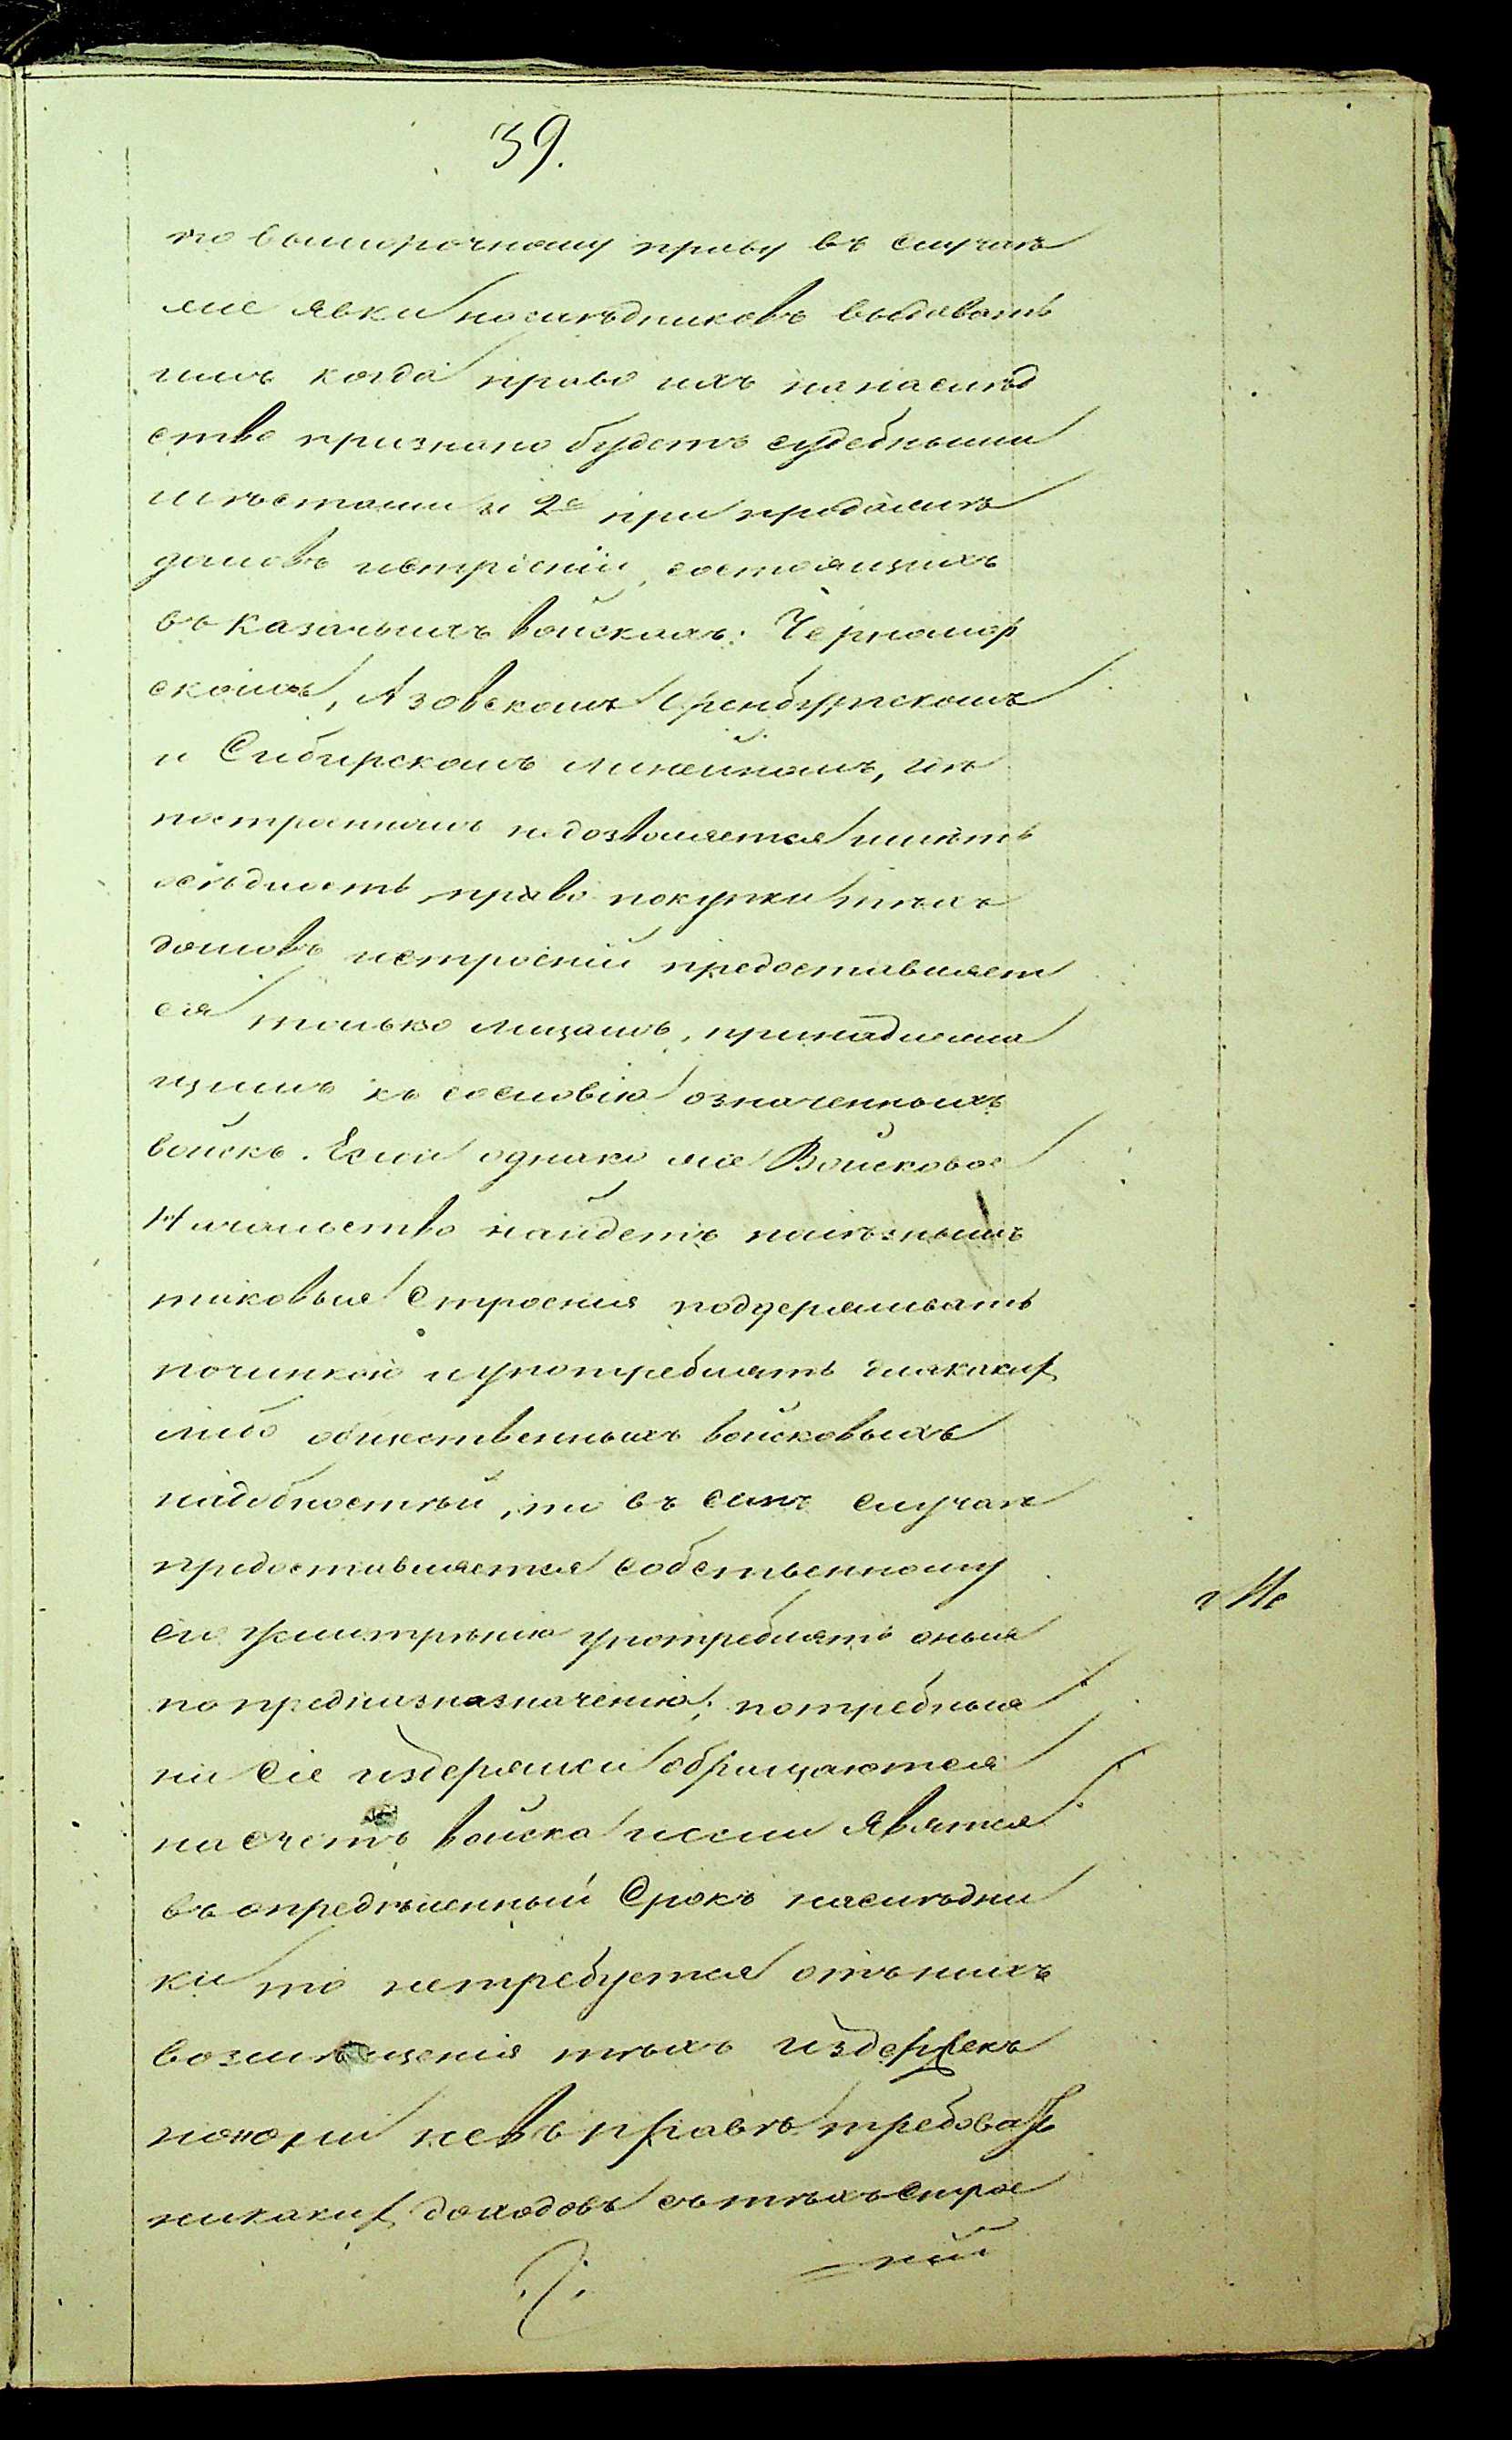 39.
по выморочному праву въ случаѣ
же явки наслѣдниковъ выдавать
имъ когда право ихъ на наслѣд
ство признано будетъ судебными
мѣстами и 2е при продажѣ
домовъ и строеніи, состоящихъ
въ казачьихъ войскахъ: Черномор
скомъ, Азовскомъ Оренбургскомъ
и Сибирскомъ линейномъ, гдѣ
постороннимъ недозволяется имѣть
осѣдлость, право покупки тѣхъ
домовъ и строеній предоставляет
ся только лицамъ, принадлежа
щимъ къ сословію означенныхъ
войскъ. Если однако же Войсковое
Начальство найдетъ полѣзнымъ
таковыя Строенія поддерживать
починкою и употреблять для каких
либо общественныхъ войсковыхъ
надобностѣй, то въ семъ случаѣ
предоставляется собственному
его усмотрѣнію употреблять оныя
по предназназначенію; потребныя
на Сіе издержки обращаются
на счетъ войска и если явятся
въ опредѣленный Срокъ наслѣдни
ки то нетребуется отъ нихъ
возмѣщенія тѣхъ издержекъ
но и они не въ правѣ требовать
никаких доходовъ съ тѣхъ строе
ній